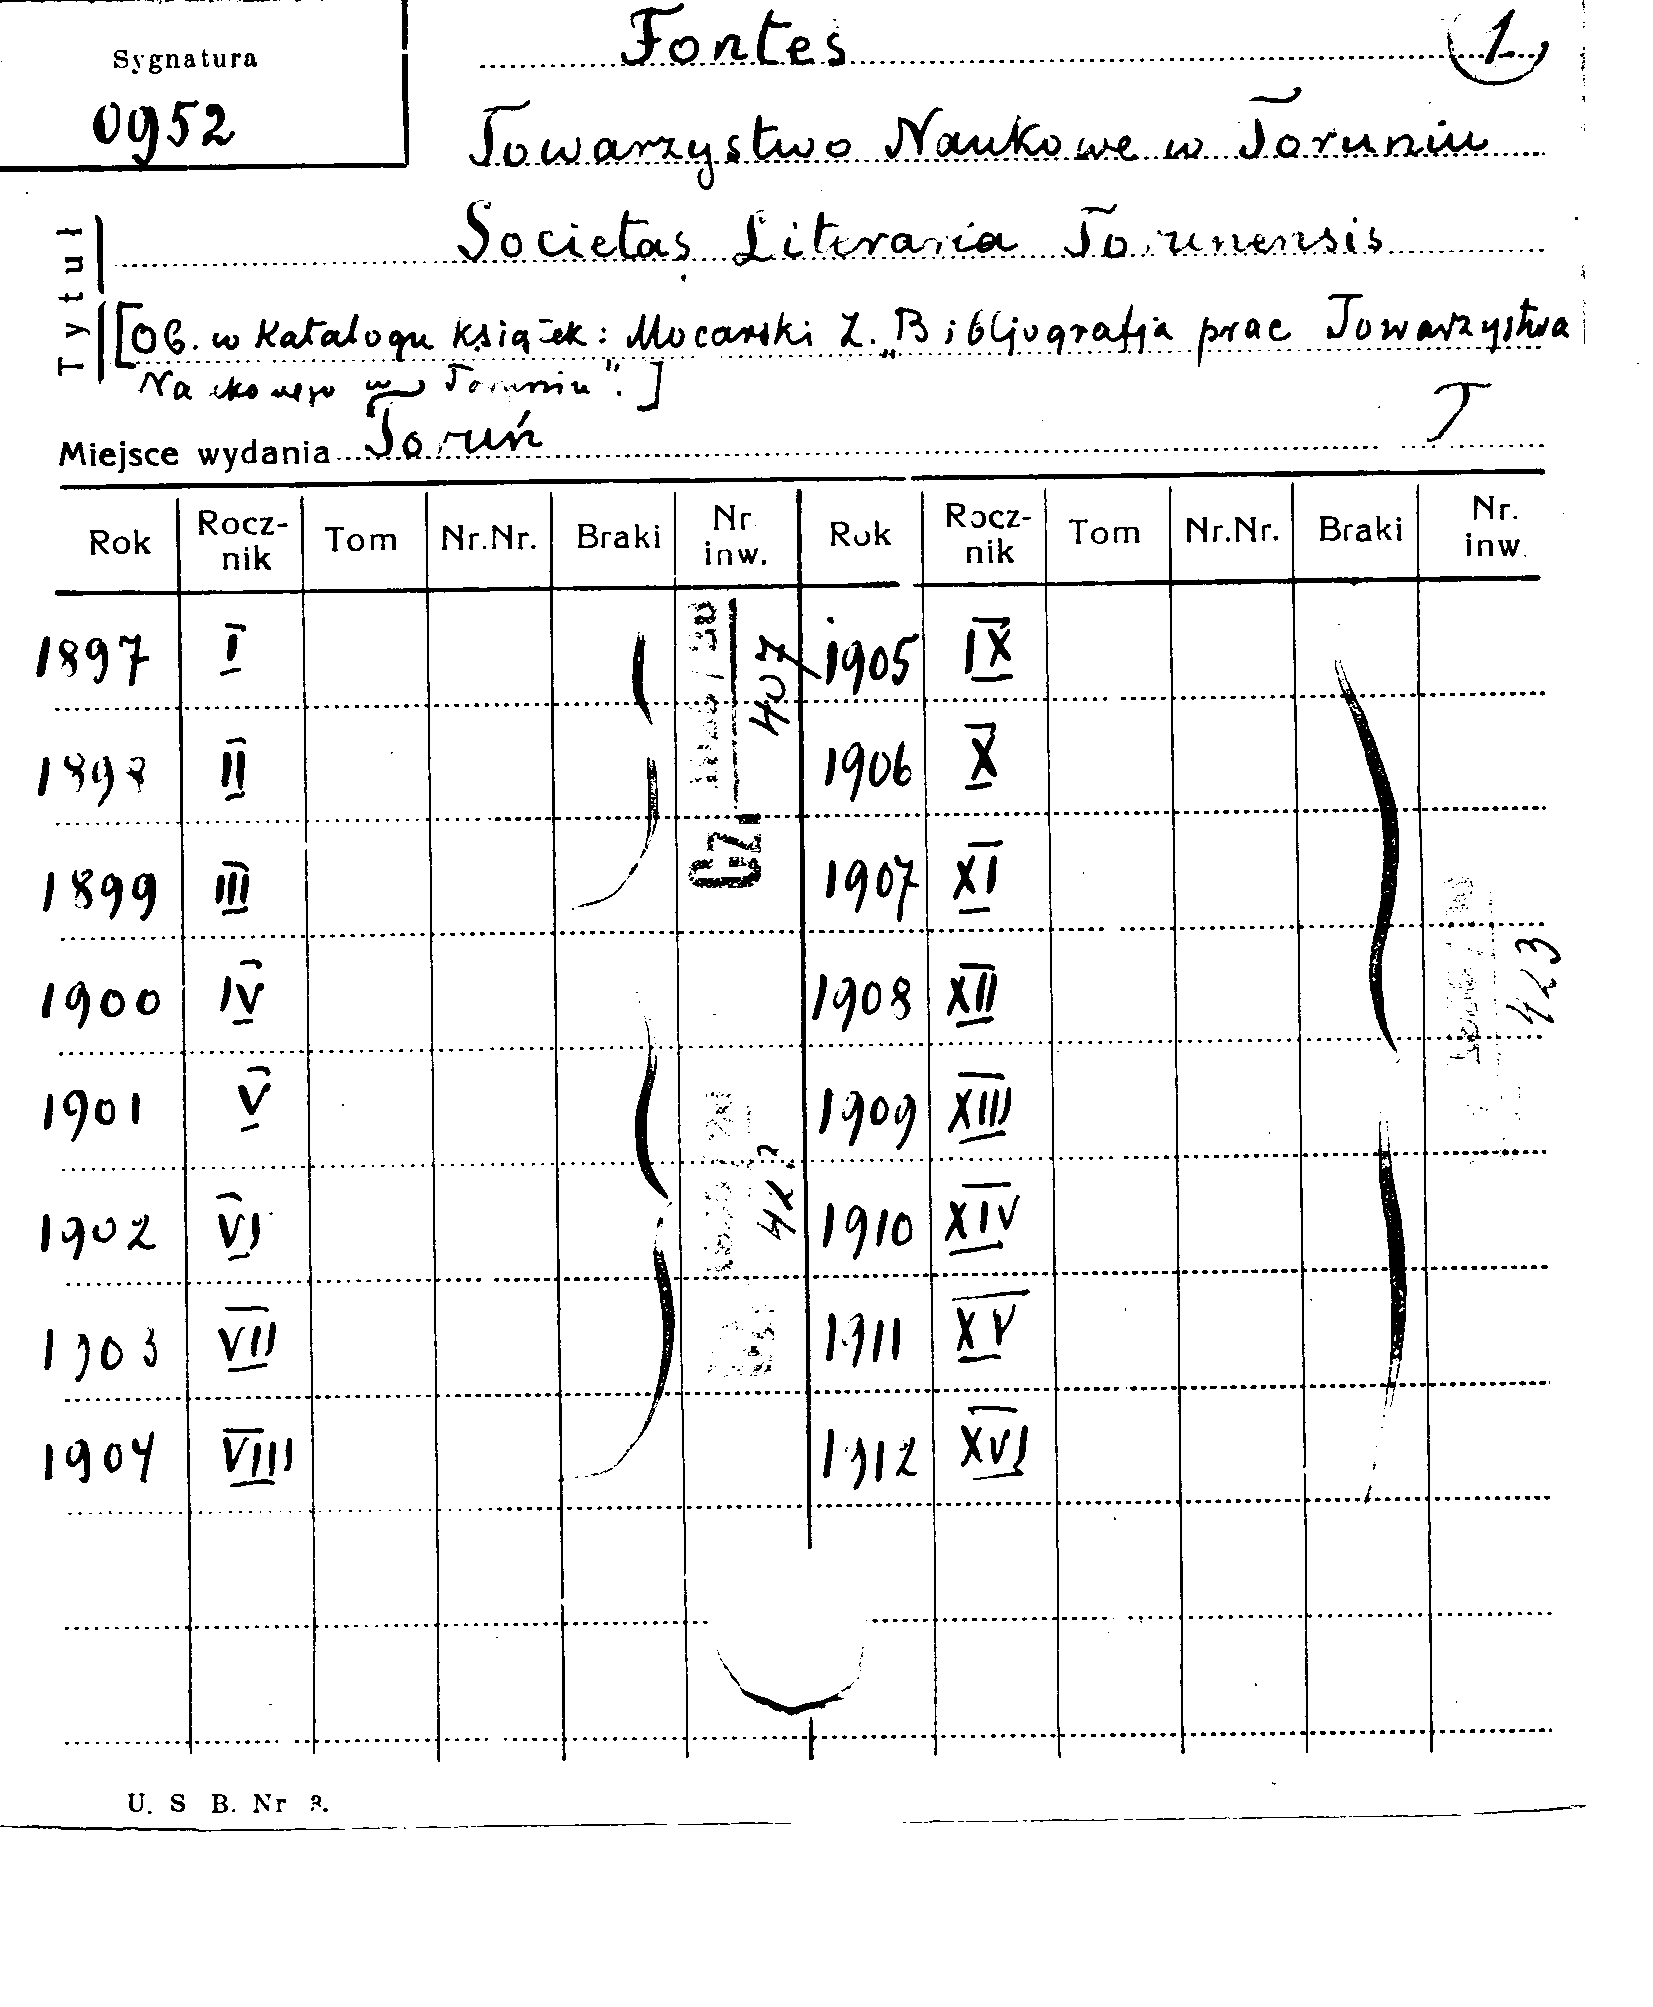 Sygnatura
0952
Fontes
1
Towarzystwo Naukowe w Toruniu
Societas Literaria Torunensis
Tytuł
[Ob. w Katalogu książek: Mocarski Z. „Bibljografja prac Towarzystwa
Naukowego w Toruniu". ]
Miejsce wydania Toruń T
Rok Rocz-nik Tom Nr.Nr. Braki Nr inw. Rok Rocz-nik Tom Nr.Nr. Braki Nr. inw.
1897 I 407 1905 IX
1898 II 1906 X
1899 III Cz. 1907 XI
1900 IV 1908 XII 423
1901 V 1909 XIII
1902 VI 1910 XIV
1903 VII 1911 XV
1904 VIII 1912 XVI
U. S B. Nr